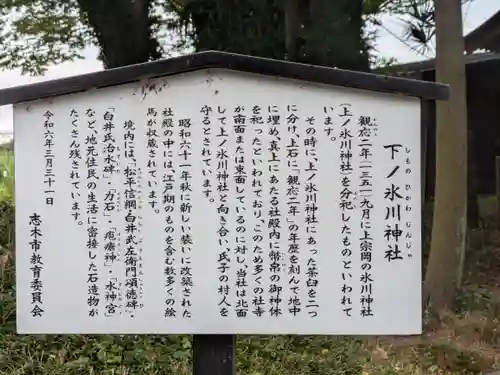 下ノ氷川神社
しもの ひかわ じんじゃ
観応二年（一三五一）九月に上宗岡の氷川神社
（上ノ氷川神社）を分祀したものといわれて
います。
その時に、上ノ氷川神社にあった茶臼を二つ
に分け、上石に「観応二年」の年歴を刻んで、地中
に埋め、真上にあたる社殿内に幣帛の御神体
を祀ったといわれており、このため多くの社寺
が南面または東面しているのに対し、当社は北面
して上ノ氷川神社と向き合い、氏子の村人を
守るとされています。
昭和六十一年秋に新しい装いに改築された
社殿の中には江戸期のものを含む数多くの絵
馬が収蔵されています。
境内には、「松平信綱・白井武左衛門頌徳碑」・
「白井氏治水碑」・「力石」・「疱瘡神」・「水神宮」
など、地元住民の生活に密接した石造物が
たくさん残されています。
令和六年三月三十一日
志木市教育委員会